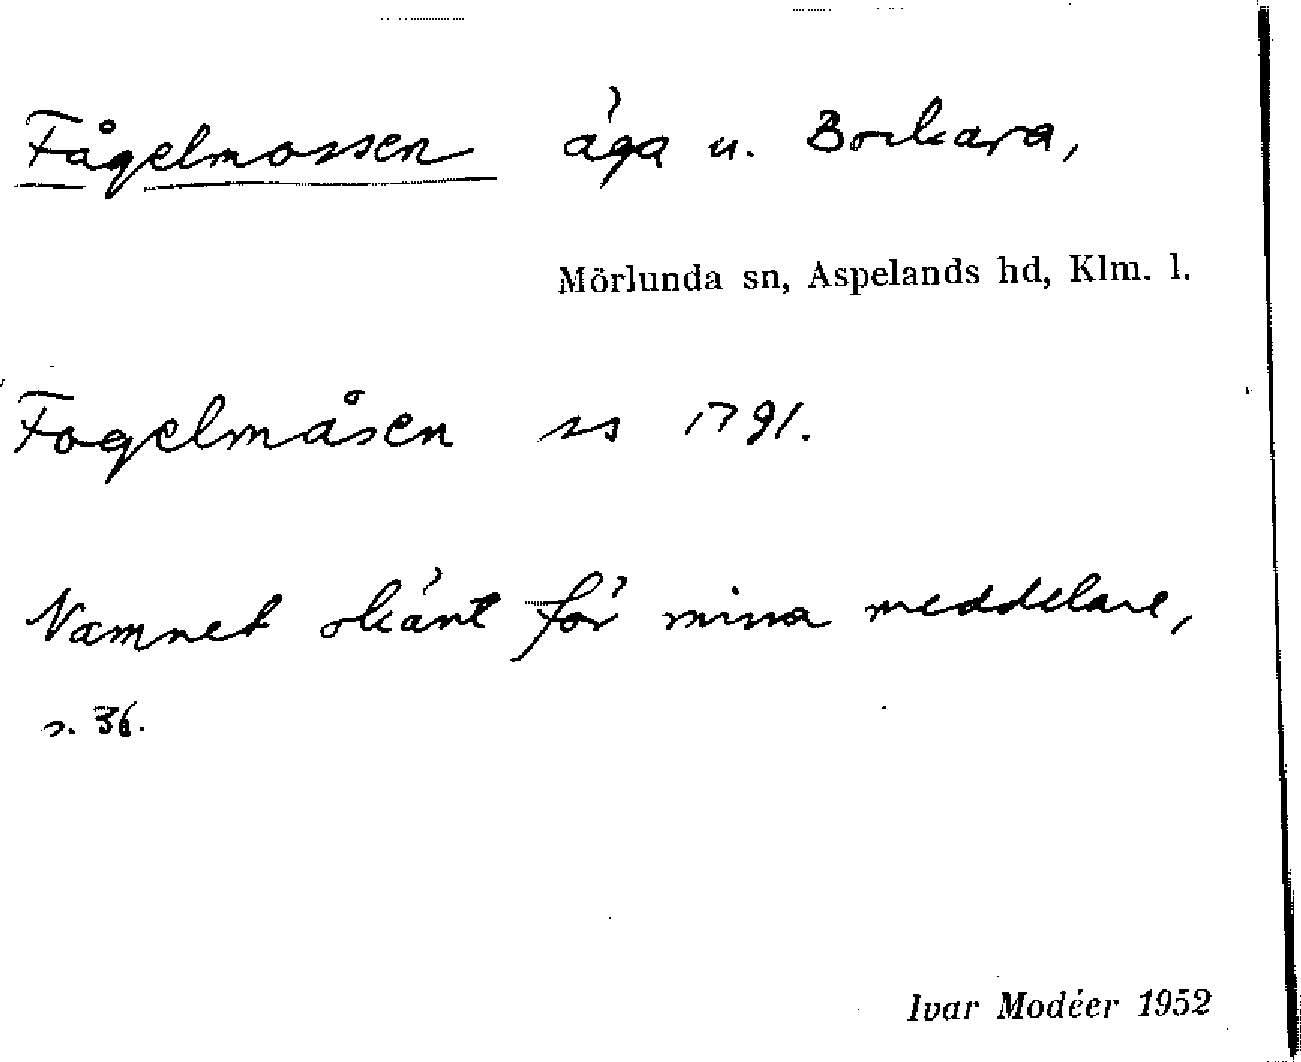 Fågelmossen äga u. Bockara,
Mörlunda sn, Aspelands hd, Klm. l.
Fogelmåsen ss 1791.
Namnet okänt för mina meddelare,
s. 36.
Ivar Modéer 1952